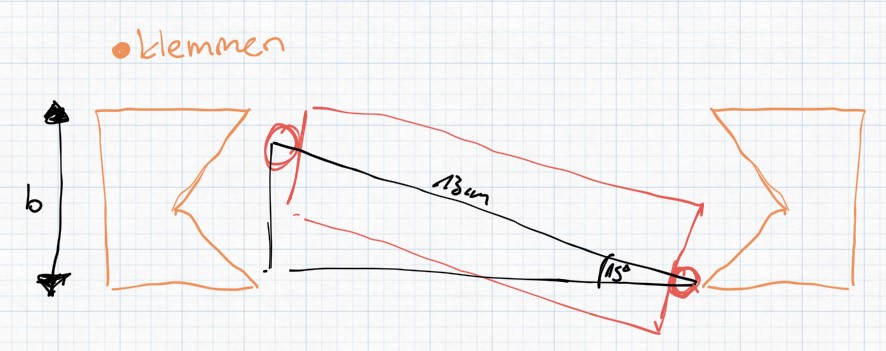 klemmen
b
13cm
15°